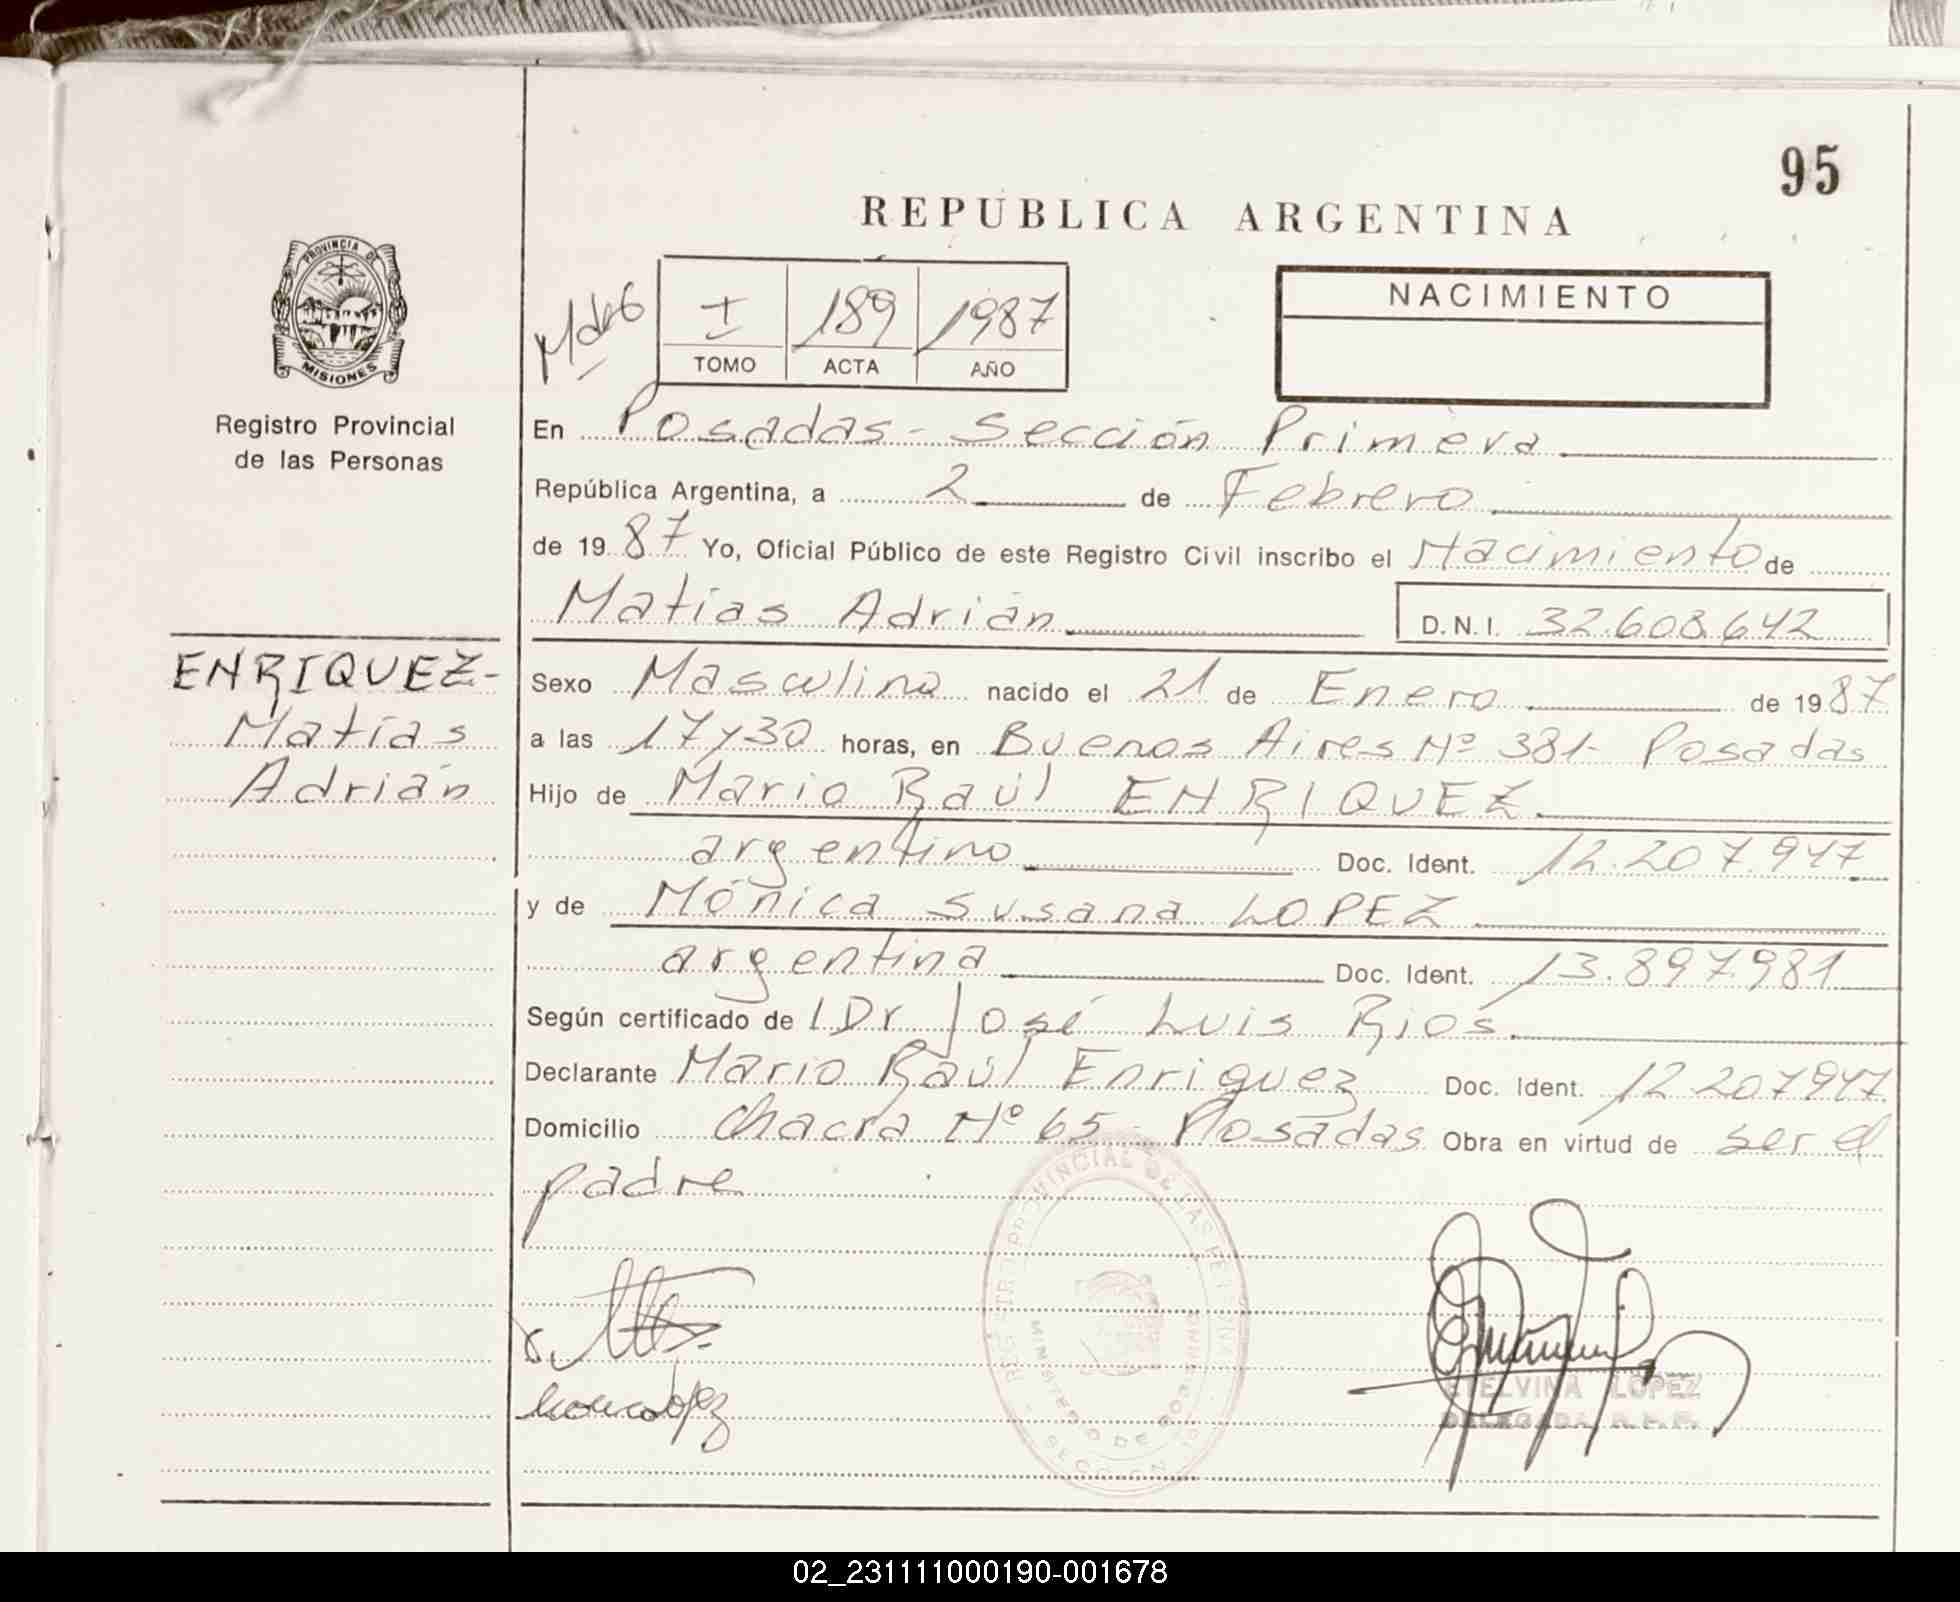 95
REPUBLICA ARGENTINA
PROVINCIA DE
MISIONES
Registro Provincial
de las Personas
I 189 1987
TOMO ACTA AÑO
NACIMIENTO
En Posadas - Sección Primera
República Argentina, a 2 de Febrero
de 19 87 Yo, Oficial Público de este Registro Civil inscribo el Nacimiento de
Matías Adrián D.N.I. 32.608.642
ENRIQUEZ-
Matías
Adrián
Sexo Masculino nacido el 21 de Enero de 19 87
a las 17 y 30 horas, en Buenos Aires Nº 381- Posadas
Hijo de Mario Raúl ENRIQUEZ
argentino Doc. Ident. 12.207.947
y de Mónica Susana LOPEZ
argentina Doc. Ident. 13.897.981
Según certificado de l Dr José Luis Rios
Declarante Mario Raúl Enriquez Doc. Ident. 12 207 947
Domicilio Chacra Nº 65 - Posadas Obra en virtud de ser el
padre
REGISTRO PROVINCIAL DE LAS PERSONAS
MINISTERIO DE GOBIERNO
SECCION 1
Monica Lopez
ETELVINA LOPEZ
DELEGADA R.P.P.
02_231111000190-001678